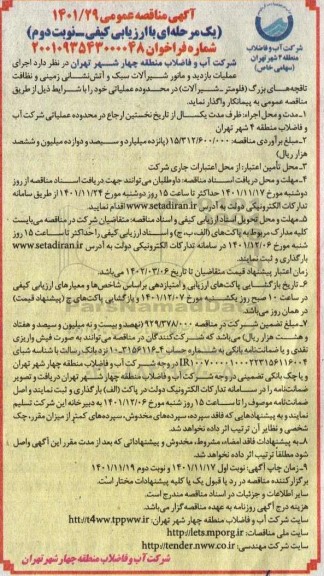 آگهی مناقصه عمومی ۱۴۰۱/۲۹
(یک مرحله‌ای با ارزیابی کیفی_نوبت دوم)
شماره فراخوان ۲۰۰۱۰۹۳۵۴۳۰۰۰۰۴۸
شرکت آب و فاضلاب
منطقه ۴ شهر تهران
(سهامی خاص)
شرکت آب و فاضلاب منطقه چهار شهر تهران در نظر دارد اجرای
عملیات بازدید و مانور شیرآلات سبک و آتش‌نشانی زمینی و نظافت
تاقچه‌های بزرگ (فلومتر_شیرآلات) در محدوده عملیاتی خود را با شرایط ذیل از طریق
مناقصه عمومی به پیمانکار واگذار نماید.
۱_مدت و محل اجراء: ظرف مدت یکسال از تاریخ نخستین ارجاع در محدوده عملیاتی شرکت آب
و فاضلاب منطقه ۴ شهر تهران
۲_مبلغ برآوردی مناقصه: ۱۵/۳۱۲/۶۰۰/۰۰۰ (پانزده میلیارد و سیصد و دوازده میلیون و ششصد
هزار ریال)
۳_محل تأمین اعتبار: از محل اعتبارات جاری شرکت
۴_مهلت و محل دریافت اسناد مناقصه: داوطلبان می‌توانند جهت دریافت اسناد مناقصه از روز
دوشنبه مورخ ۱۴۰۱/۱۱/۱۷ حداکثر تا ساعت ۱۵ روز دوشنبه مورخ ۱۴۰۱/۱۱/۲۴ از طریق سامانه
تدارکات الکترونیکی دولت به آدرس www.setadiran.ir اقدام نمایند.
۵_مهلت و محل تحویل اسناد ارزیابی کیفی و اسناد مناقصه: متقاضیان شرکت در مناقصه می‌بایست
کلیه مدارک مربوط به پاکت‌های (الف، ب، ج) و اسناد ارزیابی کیفی را حداکثر تا ساعت ۱۵ روز
شنبه مورخ ۱۴۰۱/۱۲/۰۶ در سامانه تدارکات الکترونیکی دولت به آدرس www.setadiran.ir
بارگذاری و ثبت نمایند.
زمان اعتبار پیشنهاد قیمت متقاضیان تا تاریخ ۱۴۰۲/۰۳/۰۶ می‌باشد.
۶_تاریخ بازگشایی پاکت‌های ارزیابی و امتیازدهی براساس شاخص‌ها و معیارهای ارزیابی کیفی
در ساعت ۱۰ صبح روز یکشنبه مورخ ۱۴۰۱/۱۲/۰۷ و بازگشایی پاکت‌های ج (پیشنهاد قیمت)
در همان روز می‌باشد.
۷_مبلغ تضمین شرکت در مناقصه ۹۲۹/۳۷۸/۰۰۰ (نهصد و بیست و نه میلیون و سیصد و هفتاد
و هشت هزار ریال) می‌باشد که شرکت‌کنندگان در مناقصه می‌توانند به صورت فیش واریزی
نقدی و یا ضمانت‌نامه بانکی به شماره حساب
نزد بانک رسالت با شناسه شبای
در وجه شرکت آب و فاضلاب منطقه چهار شهر تهران
و یا چک بانکی تضمینی در وجه شرکت آب و فاضلاب منطقه چهار شهر تهران دریافت و تصویر
ضمانت‌نامه را در سامانه تدارکات الکترونیک دولت در پاکت (الف) بارگذاری و ثبت نمایند و اصل
ضمانت‌نامه موصوف را تا ساعت ۱۵ روز شنبه مورخ ۱۴۰۱/۱۲/۰۶ به دبیرخانه این شرکت تسلیم
نمایند و به پیشنهادهایی که فاقد سپرده، سپرده‌های مخدوش، سپرده‌های کمتر از میزان مقرر، چک
شخصی و نظایر آن ترتیب اثر داده نخواهد شد.
۸_به پیشنهادات فاقد امضاء، مشروط، مخدوش و پیشنهاداتی که بعد از مدت مقرر این آگهی واصل
شود مطلقا ترتیب اثر داده نخواهد شد.
۹_زمان چاپ آگهی: نوبت اول ۱۴۰۱/۱۱/۱۷ و نوبت دوم ۱۴۰۱/۱۱/۱۹
برگزارکننده مناقصه در رد یا قبول یک یا کلیه پیشنهادات مختار است.
سایر اطلاعات و جزئیات در اسناد مناقصه مندرج است.
هزینه درج آگهی روزنامه به عهده مناقصه گزار می‌باشد.
سایت شرکت آب و فاضلاب منطقه چهار شهر تهران: htt://t4ww.tppww.ir
سایت ملی مناقصات: http://iets.mporg.ir
سایت شرکت مهندسی: http://tender.nww.co.ir
شرکت آب و فاضلاب منطقه چهار شهر تهران